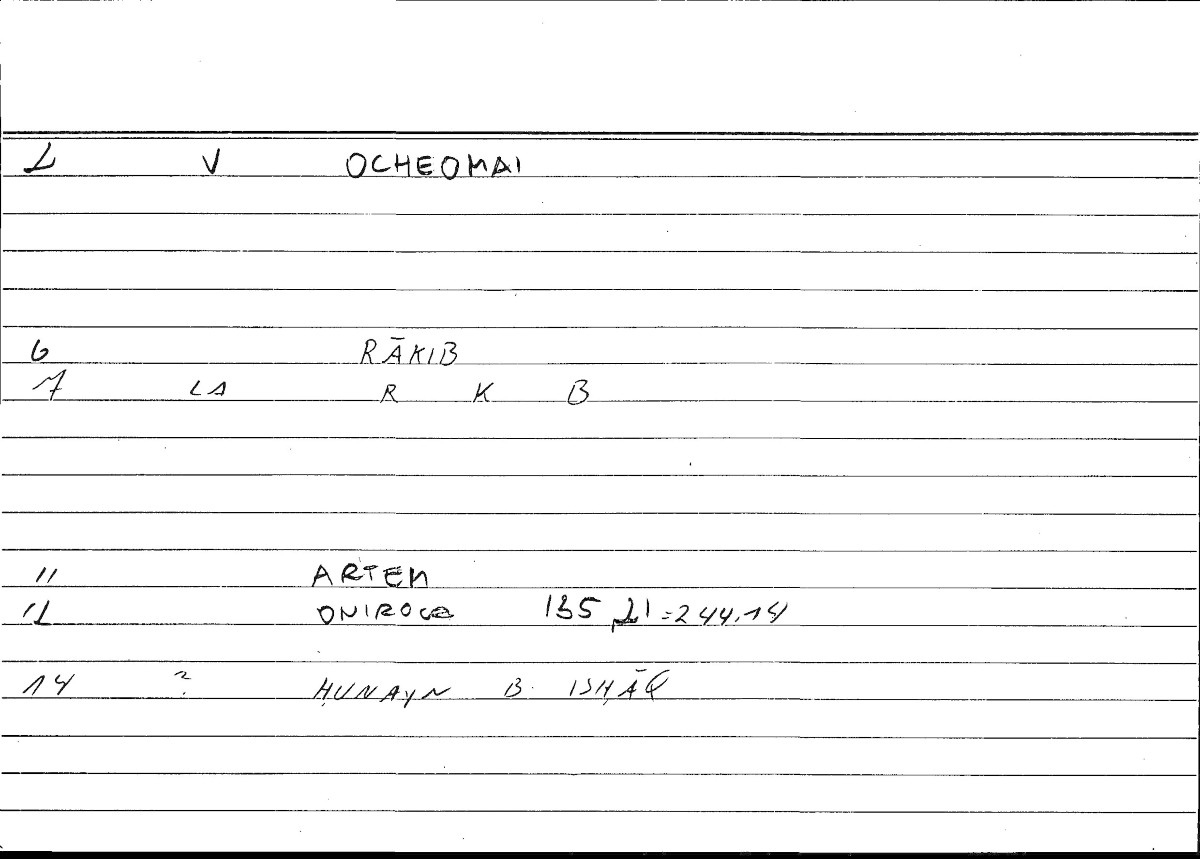 2 V OCHEOMAI
6 RĀKIB
7 LA R K B
11 ARTEM
12 ONIROCR 135,21=244,14
14 ? ḤUNAYN B. ISḤĀQ